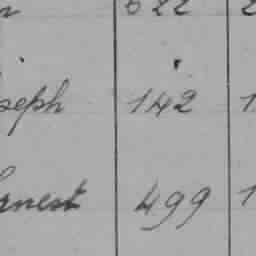 622
seph 142 1
rnest 499 1